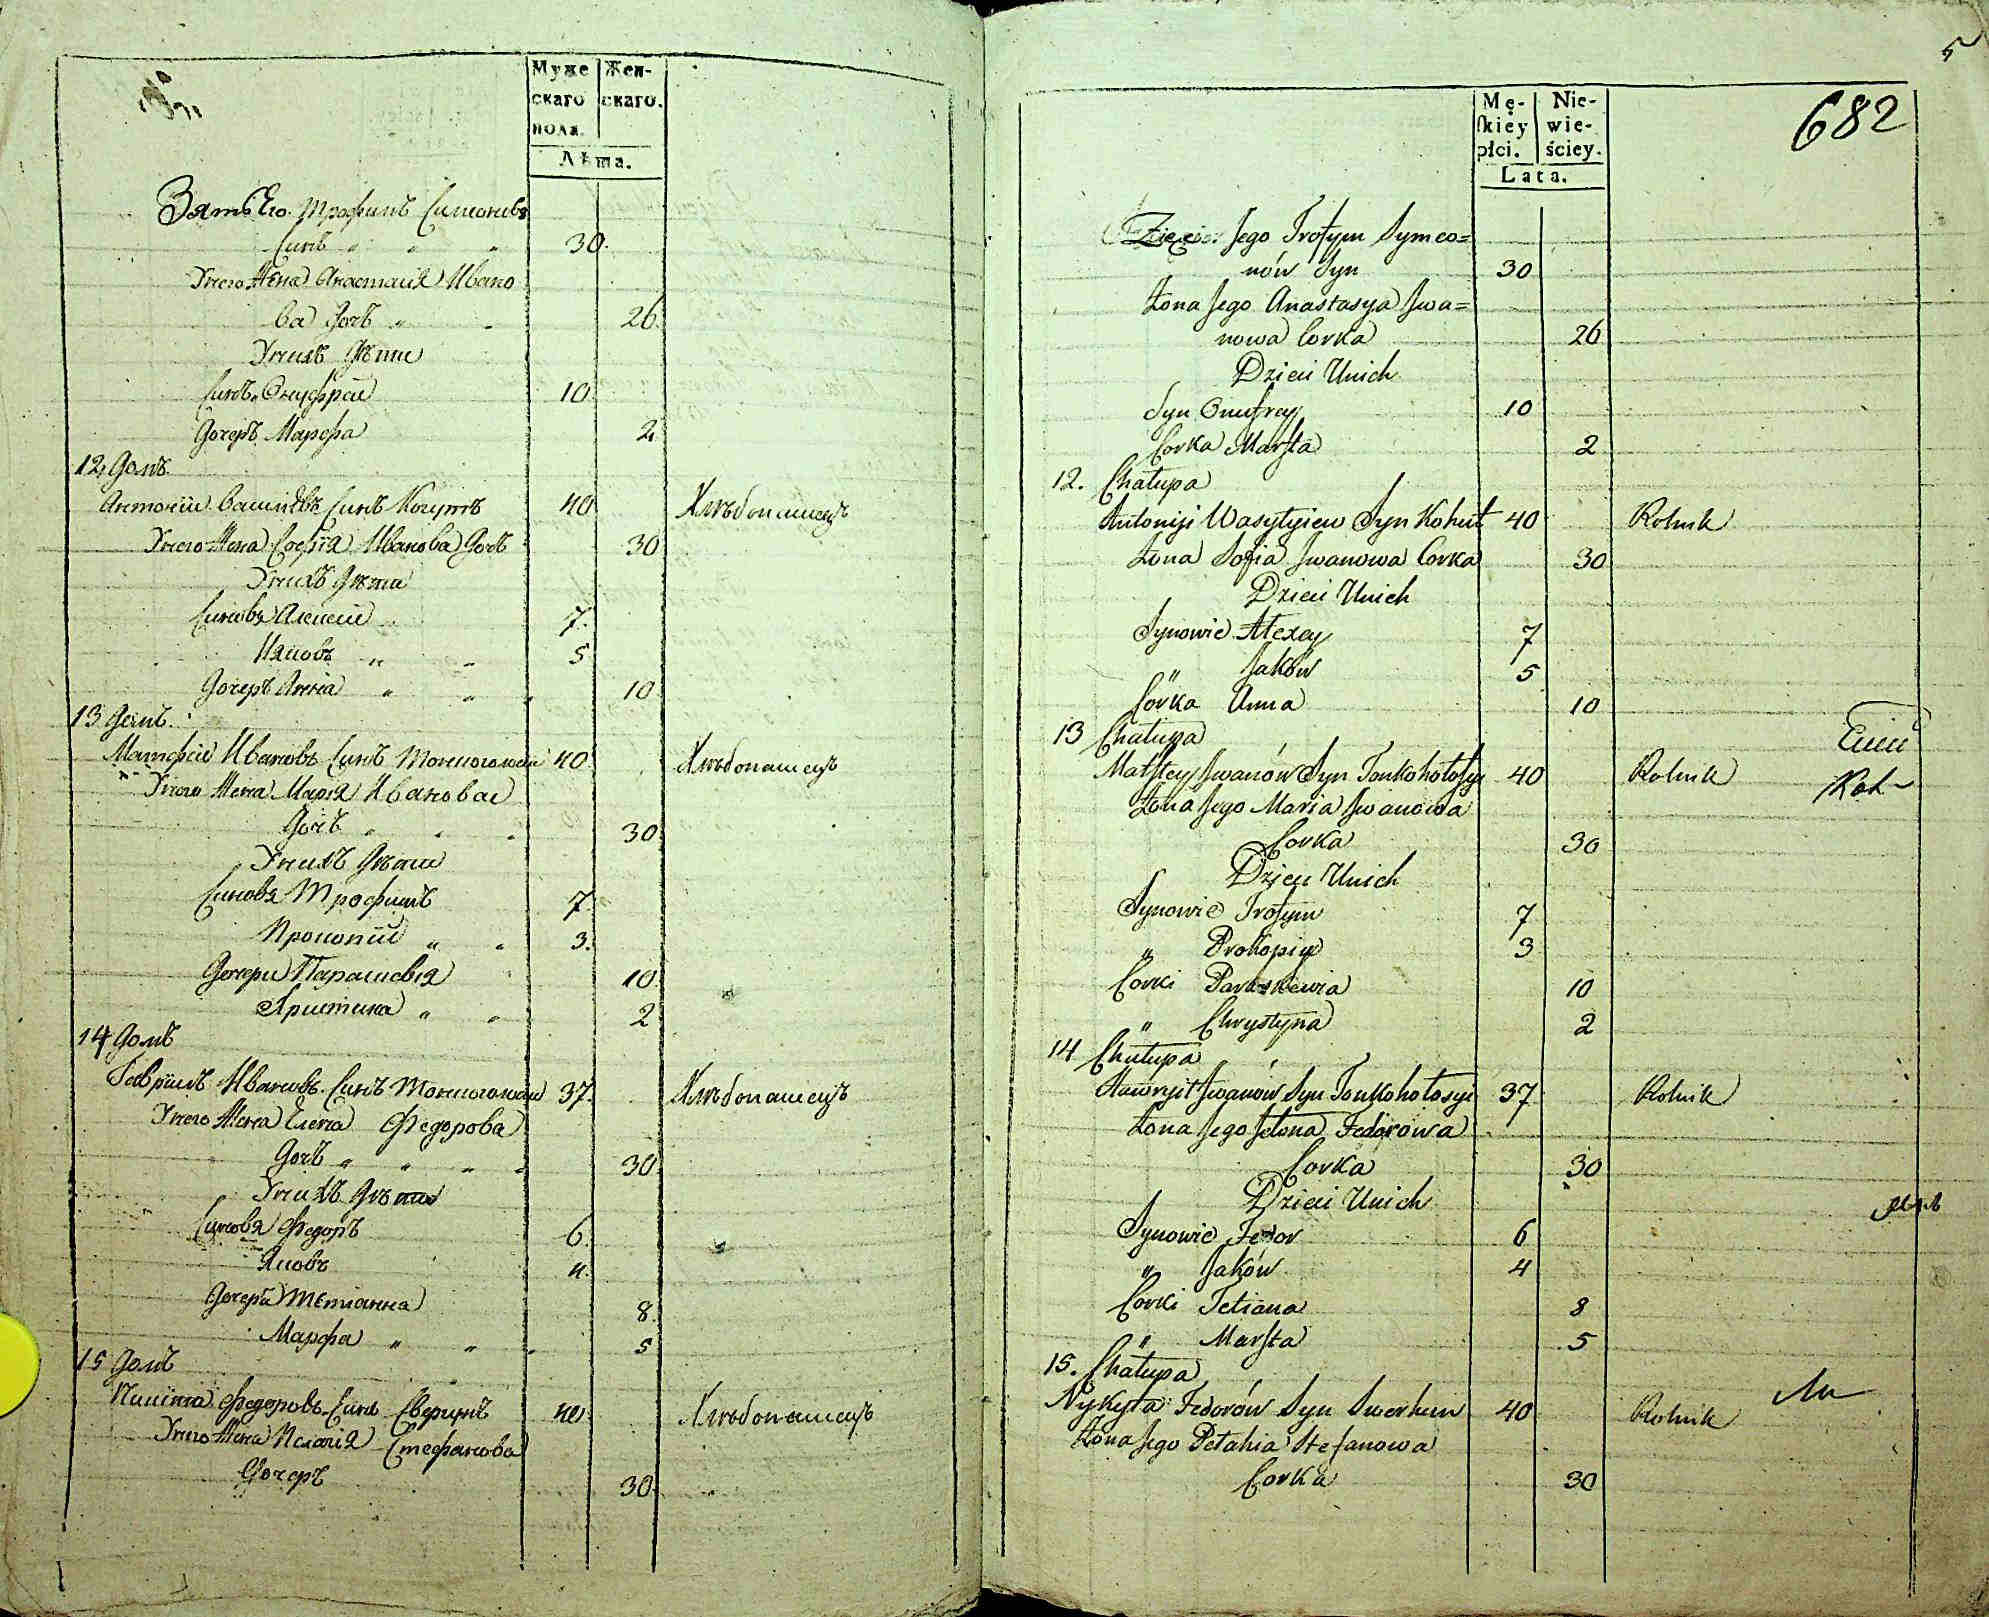 Муже
скаго
пола.
Жен-
скаго.
Лѣта.
Зять Его Трофимъ Симоновъ
Синъ „ „ „ 30.
У него Жена Анастасія Ивано
ва Дочь „ „ 26.
У нихъ Дѣти
Синъ Онуфрій 10.
Дочерь Марфа 2.
12 Домъ.
Антоній Василіевъ Синъ Когутъ 40 Хлѣбопашецъ
У него Жена Софія Иванова Дочь 30
У нихъ Дѣти
Синовья Алексій 7.
Іяковъ „ „ 5
Дочерь Анна „ „ „ 10.
13 Домъ.
Матфей Ивановъ Синъ Тонкоголосій 40. Хлѣбопашецъ
У него Жена Марія Ивановая
Дочь „ „ „ 30.
У нихъ Дѣти
Синовя Трофимъ 7.
Прокопій „ „ 3.
Дочери Параскевія 10.
Христина „ „ 2
14 Домъ
Гавріилъ Ивановъ Синъ Тонкоголосій 37. Хлѣбопашецъ
У него Жена Елена Федорова
Дочь „ „ „ „ 30.
У нихъ Дѣти
Синовя Федоръ 6.
Яковъ 4.
Дочери Тетіанна 8.
Марфа „ „ „ 5
15 Домъ
Никита Федоровъ Синъ 40. Хлѣбопашецъ
У него Жена Пелагія Стефанова
Дочерь 30.
5
682
Mę-
skiey
płci.
Nie-
wie-
ściey.
Lata.
Zięć Jego Trofym Symeo=
nów Syn 30
Żona Jego Anastasya Jwa=
nowa Corka 26
Dzieci Unich
Syn Onufrey 10
Corka Marfta 2
12. Chałupa
Antoniji Wasylyiew Syn Kohut 40 Rolnik
Żona Sofia Jwanowa Corka 30
Dzieci Unich
Synowie Alexey 7
„ Jaków 5
Corka Anna 10
13 Chałupa
Matftey Jwanów Syn Tonkohołosyi 40 Rolnik
Żona Jego Maria Jwanowa
Corka 30
Dzieci Unich
Synowie Trofym 7
„ Prokopiy 3
Corki Paraskewia 10
„ Chrystyna 2
14 Chałupa
Hawryił Jwanów Syn Tonkohołosyi 37 Rolnik
Żona Jego Jełona Fedorowa
Corka 30
Dzieci Unich
Synowie Fedor 6
„ Jaków 4
Corki Tetiana 8
„ Marfta 5
15. Chałupa
Nykyta Fedorów Syn Swerhun 40 Rolnik
Żona Jego Pełahia Stefanowa
Corka 30